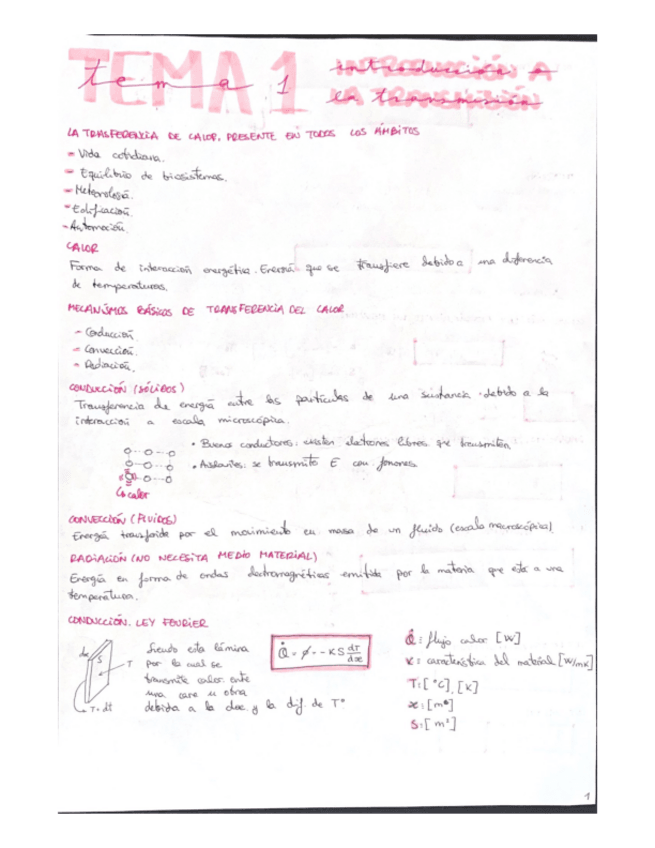 TEMA 1 INTRODUCCIÓN A
tema 1 introducción a
LA TRANSMISIÓN
la transmisión
LA TRASFERENCIA DE CALOR, PRESENTE EN TODOS LOS ÁMBITOS
- Vida cotidiana.
- Equilibrio de biosistemas.
- Meteorología.
- Edificación.
- Automoción.
CALOR
Forma de interacción energética. Energía que se transfiere debido a una diferencia
de temperaturas.
MECANISMOS BÁSICOS DE TRANSFERENCIA DEL CALOR
- Conducción.
- Convección.
- Radiación.
CONDUCCIÓN (SÓLIDOS)
Transferencia de energía entre las partículas de una sustancia debido a la
interacción a escala microscópica.
• Buenos conductores: existen electrones libres que transmiten
• Aislantes: se transmite E con fonones.
calor
CONVECCIÓN (FLUIDOS)
Energía transferida por el movimiento en masa de un fluido (escala macroscópica)
RADIACIÓN (NO NECESITA MEDIO MATERIAL)
Energía en forma de ondas electromagnéticas emitida por la materia que está a una
temperatura.
CONDUCCIÓN. LEY FOURIER
dx S T T+dt
Siendo esta lámina
por la cual se
transmite calor entre
una cara u otra
debida a la dx y la dif. de Tª
Q̇ = φ = -KS dT/dx
Q̇: flujo calor [W]
K: característica del material [W/mK]
T: [°C], [K]
x: [m]
S: [m²]
1